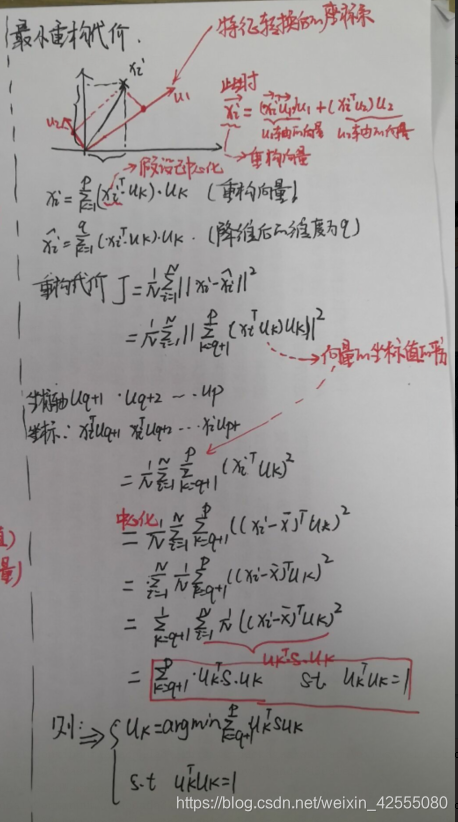 最小重构代价.
特征转换后的座标系
xi
u2
u1
此时
xi = (xiᵀu1)u1 + (xiᵀu2)u2
u1轴的向量 u2轴的向量
重构向量
假设已中心化
xi = Σ_{k=1}^{p} (xiᵀ·uk)·uk (重构向量)
x̂i = Σ_{k=1}^{q} (xiᵀ·uk)·uk. (降维后的维度为q)
重构代价 J = 1/N Σ_{i=1}^{N} ||xi - x̂i||²
= 1/N Σ_{i=1}^{N} || Σ_{k=q+1}^{p} (xiᵀuk)uk ||²
向量的坐标值的平
坐标轴 uq+1 · uq+2 ··· up
坐标: xiᵀuq+1 xiᵀuq+2 ··· xiᵀup
= 1/N Σ_{i=1}^{N} Σ_{k=q+1}^{p} (xiᵀuk)²
中心化
= 1/N Σ_{i=1}^{N} Σ_{k=q+1}^{p} ((xi - x̄)ᵀuk)²
= Σ_{i=1}^{N} 1/N Σ_{k=q+1}^{p} ((xi - x̄)ᵀuk)²
= Σ_{k=q+1} Σ_{i=1}^{N} 1/N ((xi - x̄)ᵀuk)²
ukᵀ·s·uk
= Σ_{k=q+1}^{p} ·ukᵀs·uk s.t ukᵀuk=1
则: ⇒ { uk = argmin Σ_{k=q+1}^{p} ukᵀsuk
s.t ukᵀuk=1
量)
https://blog.csdn.net/weixin_42555080